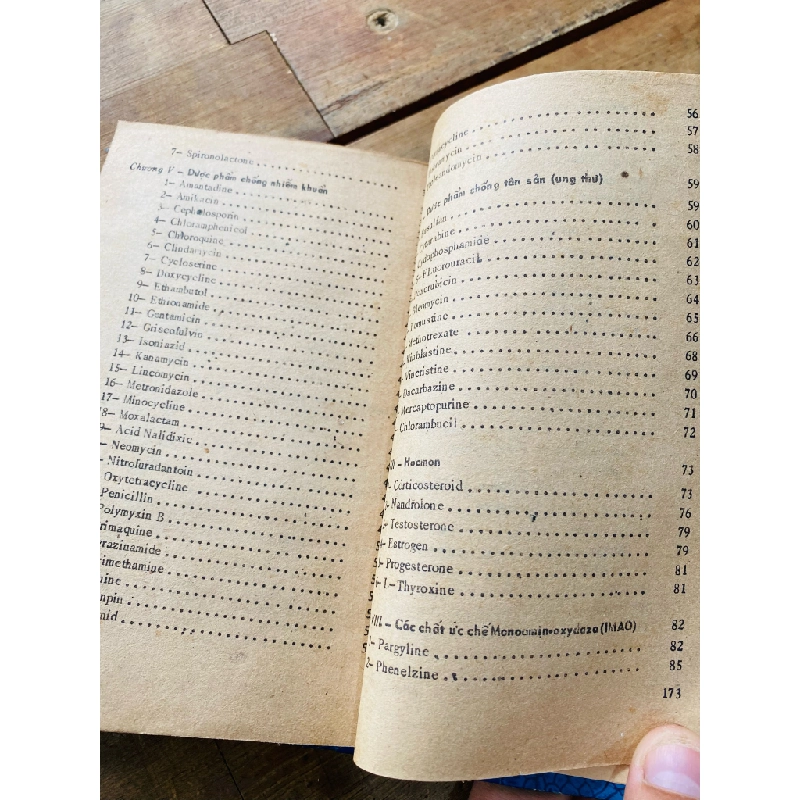 7— Spironolactone
Chương V — Dược phẩm chống nhiễm khuẩn
1— Amantadine
2— Amikacin
3— Cephalosporin
4— Chloramphenicol
5— Chloroquine
6— Clindamycin
7— Cycloserine
8— Doxycycline
9— Ethambutol
10— Ethionamide
11— Gentamicin
12— Griseofulvin
13— Isoniazid
14— Kanamycin
15— Lincomycin
16— Metronidazole
17— Minocycline
18— Moxalactam
9— Acid Nalidixic
— Neomycin
— Nitrofuradantoin
Oxytetracycline
Penicillin
Polymyxin B
rimaquine
razinamide
rimethamine
nine
npin
mid
acycline 56
amycin 57
oleandomycin 58
Dược phẩm chống tân sản (ung thư) 59
59
60
phosphamide 61
5- Fluorouracil 62
63
leomycin 64
Lomustine 65
Methotrexate 66
Vinblastine 68
Vincristine 69
Dacarbazine 70
Mercaptopurine 71
Chlorambucil 72
— Hocmon 73
— Corticosteroid 73
— Nandrolone 76
— Testosterone 79
— Estrogen 79
— Progesterone 81
— L-Thyroxine 81
VIII. — Các chất ức chế Monoamin-oxydaza (IMAO) 82
— Pargyline 82
2— Phenelzine 85
173